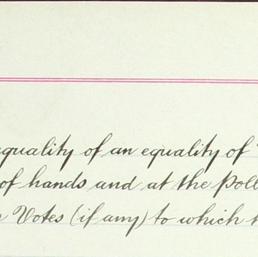 equality of an equality of
of hands and at the Poll
Votes (if any) to which